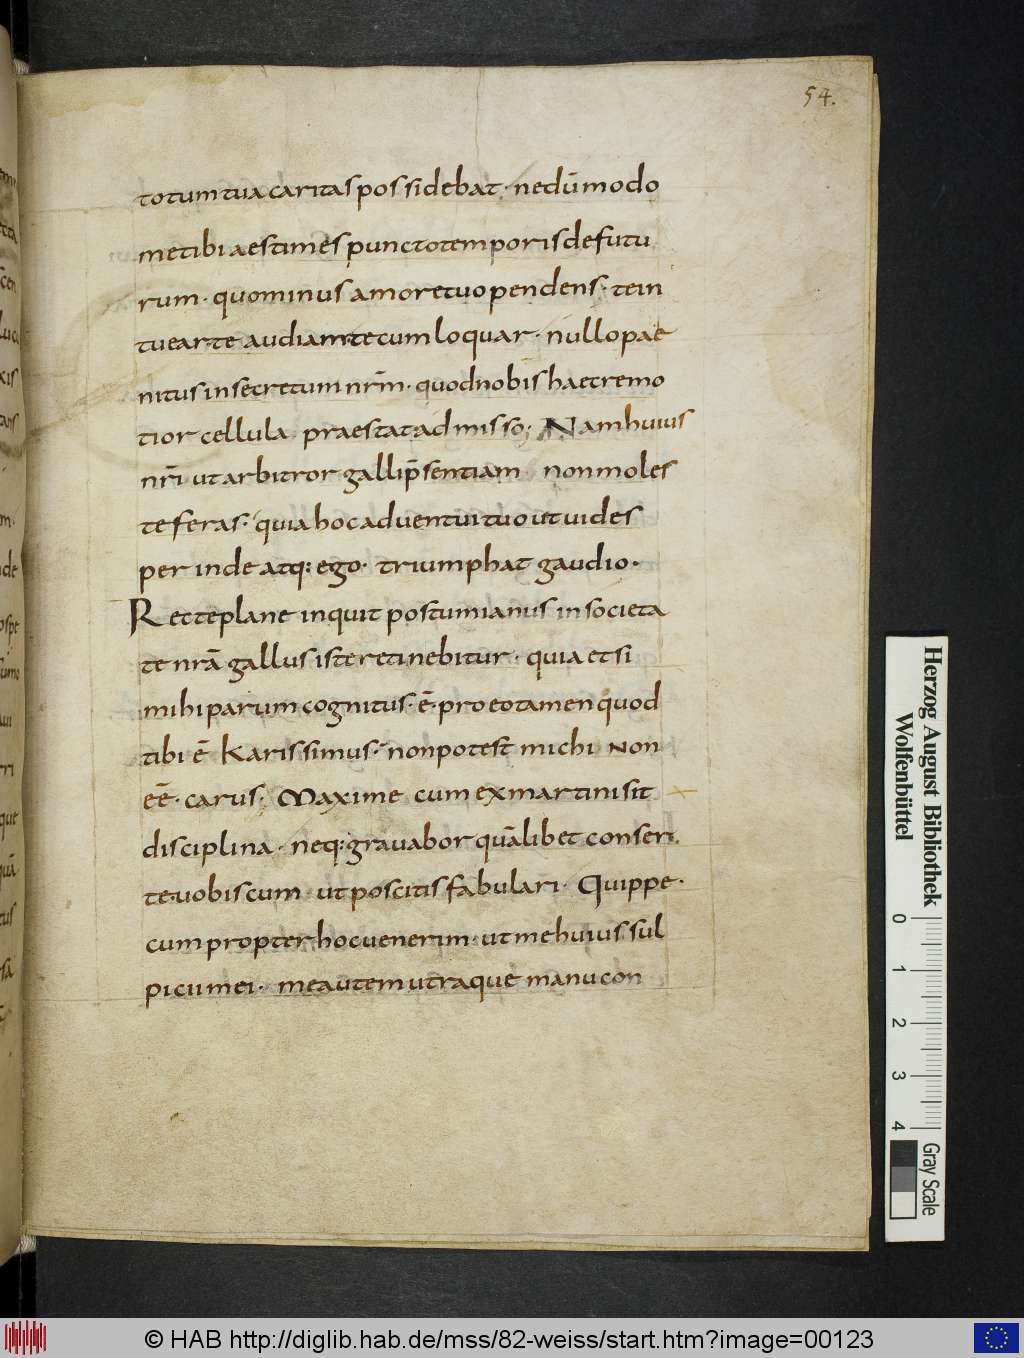 54.
totum tua caritas possidebat · nedū modo
me tibi aestimes puncto temporis defutu
rum · quominus amore tuo pendens · te in
tuear · te audiam · te cum loquar · nullo pae
nitus in secretum nr̄m · quod nobis haec remo
tior cellula praestat admisso · Nam huius
nr̄i ut arbitror galli p̄sentiam non moles
te feras · quia hoc aduentui tuo ut uides
perinde atq: ego · triumphat gaudio ·
Recte plane inquit postumianus in societa
te nr̄a gallus iste retinebitur · quia et si
mihi parum cognitus · ē · pro eo tamen quod
tibi ē Karissimus · non potest michi non
eē · carus · Maxime cum ex martini sit
disciplina · neq: grauabor quālibet conser
te uobiscum ut poscitis fabulari · Quippe ·
cum propter hoc uenerim · ut me huius sul
picii mei · me autem utraque manu con
Herzog August Bibliothek
Wolfenbüttel
0 1 2 3 4
Gray Scale
© HAB http://diglib.hab.de/mss/82-weiss/start.htm?image=00123